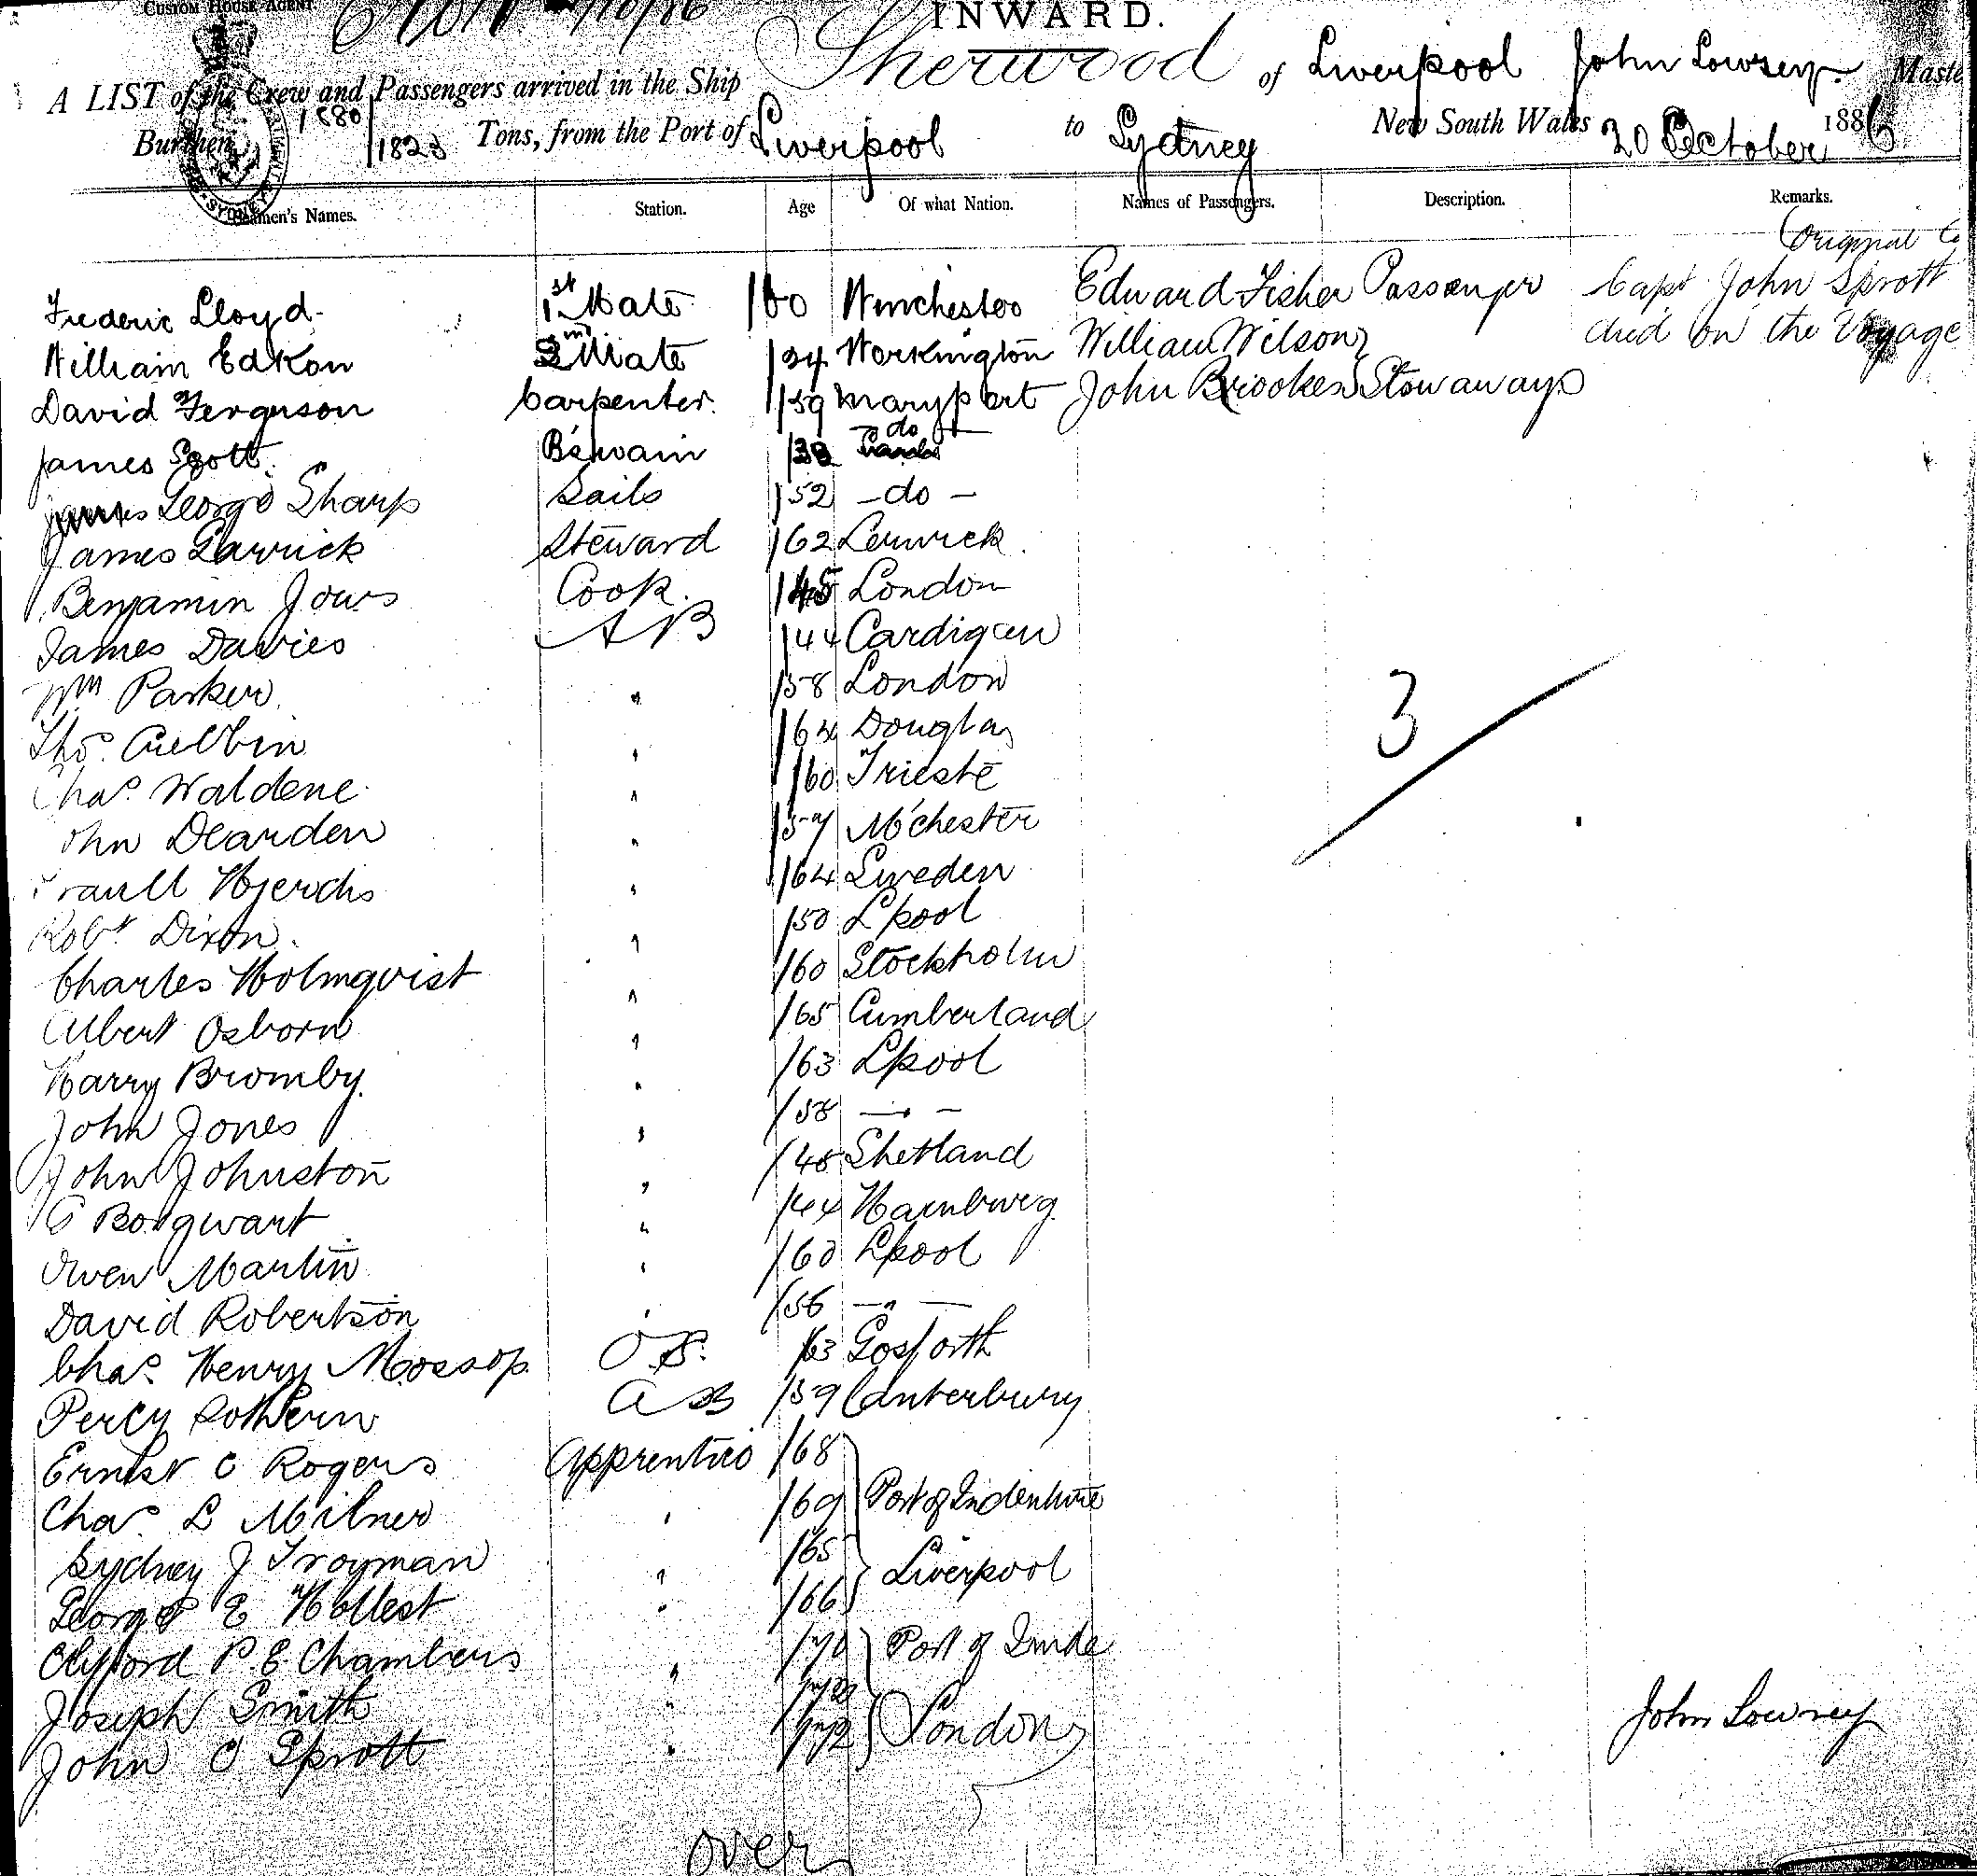 CUSTOM HOUSE AGENT
INWARD.
A LIST of the Crew and Passengers arrived in the Ship Sherwood of Liverpool John Lowsey Maste
Burthen 1680 / 1823 Tons, from the Port of Liverpool to Sydney New South Wales 20 October 1886
Seamen's Names. Station. Age Of what Nation. Names of Passengers. Description. Remarks.
Original
Frederic Lloyd 1st Mate /60 Edward Fisher Passenger Capt John Sprott
William Edkon 2nd Mate /34 Workington William Wilson died on the Voyage
David Ferguson Carpenter /59 Maryport John Brookes Stowaways
James Scott B'swain do
George Sharp Sails /52 - do -
James Garrick Steward /62 Lerwick
Benjamin Cook. /45 London
James Davies AB /44 Cardigan
Wm Parker " /58 London
Thos. " /64 Douglas
Chas. Waldene " /60 Trieste
ohn Dearden " /57 M'chester
" /64 Sweden
Robt Dixon " /50 Lpool
Charles Holmqvist " /60 Stockholm
Albert Osborn " /65 Cumberland
Harry Bromby " /63 Lpool
John Jones " /58 — " —
John Johnston " /48 Shetland
Borgwart " /44 Hamburg
Owen Martin " /60 Lpool
David Robertson " /56 — " —
Chas. Henry Mossop O.S. /63 Gosforth
Percy Sothern AB /59 Canterbury
Ernest C Rogers Apprentice /68
Chas. L Milner " /69 Port of Indenture
Sydney J Troyman " /65 Liverpool
George E Hollest " /66
Clifford P. E Chambers " /70 Port of Inde
Joseph Smith " London
John C Sprott " /72
John Lowsey
3
over